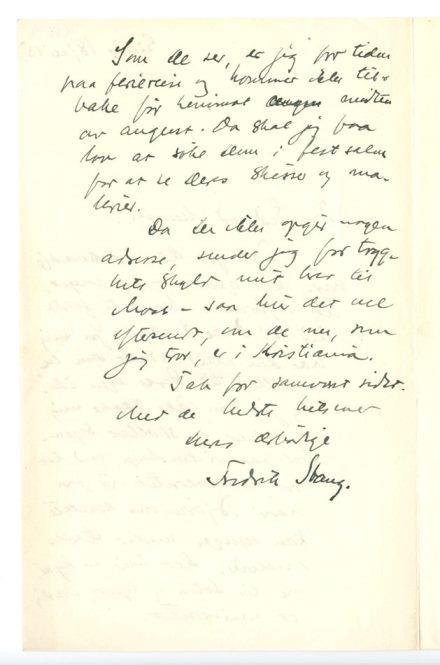 Som De ser, er jeg for tiden
paa feriereise og kommer ikke til-
bake før henimot midten
av august. Da skal jeg faa
lov at søke Dem i festsalen
for at se Deres skisser og ma-
lerier.
Da De ikke opgir nogen
adresse, sender jeg for tryg-
hets skyld mit brev til
Moss – saa blir det vel
eftersendt, om De nu, som
jeg tror, er i Kristiania.
Tak for samvær sidst.
Med de bedste hilsener
Deres ærbødige
Fredrik Stang.